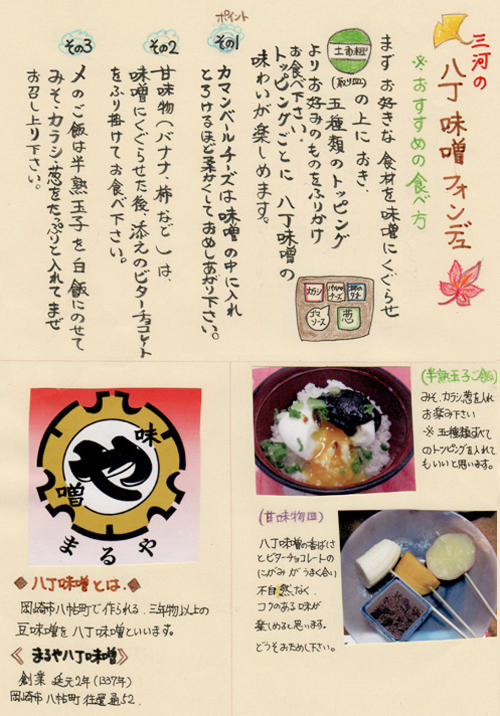 三河の
八丁味噌フォンデュ
※おすすめの食べ方
まずお好きな食材を味噌にくぐらせ
(取り皿)の上におき、
五種類のトッピング
よりお好みのものをふりかけ
お食べ下さい。
トッピングごとに八丁味噌の
味わいが楽しめます。
カラシ
パルメザンチーズ
ゴマソース
葱
ポイント
その1
カマンベールチーズは味噌の中に入れ
とろけるほど柔かくしておめしあがり下さい。
その2
甘味物(バナナ、柿など)は、
味噌にくぐらせた後、添えのビターチョコレート
をふり掛けてお食べ下さい。
その3
〆のご飯は半熟玉子を白飯にのせて
みそ、カラシ、葱をたっぷりと入れてまぜ
お召し上り下さい。
(半熟玉子ご飯)
みそ、カラシ、葱を入れ
お楽み下さい
※五種類すべて
のトッピングを入れて
もいいと思います。
(甘味物皿)
八丁味噌の香ばしさ
とビターチョコレートの
にがみがうまく合い
不自然なく、
コクのある味が
楽しめると思います。
どうぞおためし下さい。
味
や
噌
まるや
八丁味噌とは、
岡崎市八帖町で作られる、三年物以上の
豆味噌を八丁味噌といいます。
《まるや八丁味噌》
創業 延元2年(1337年)
岡崎市八帖町往還通52